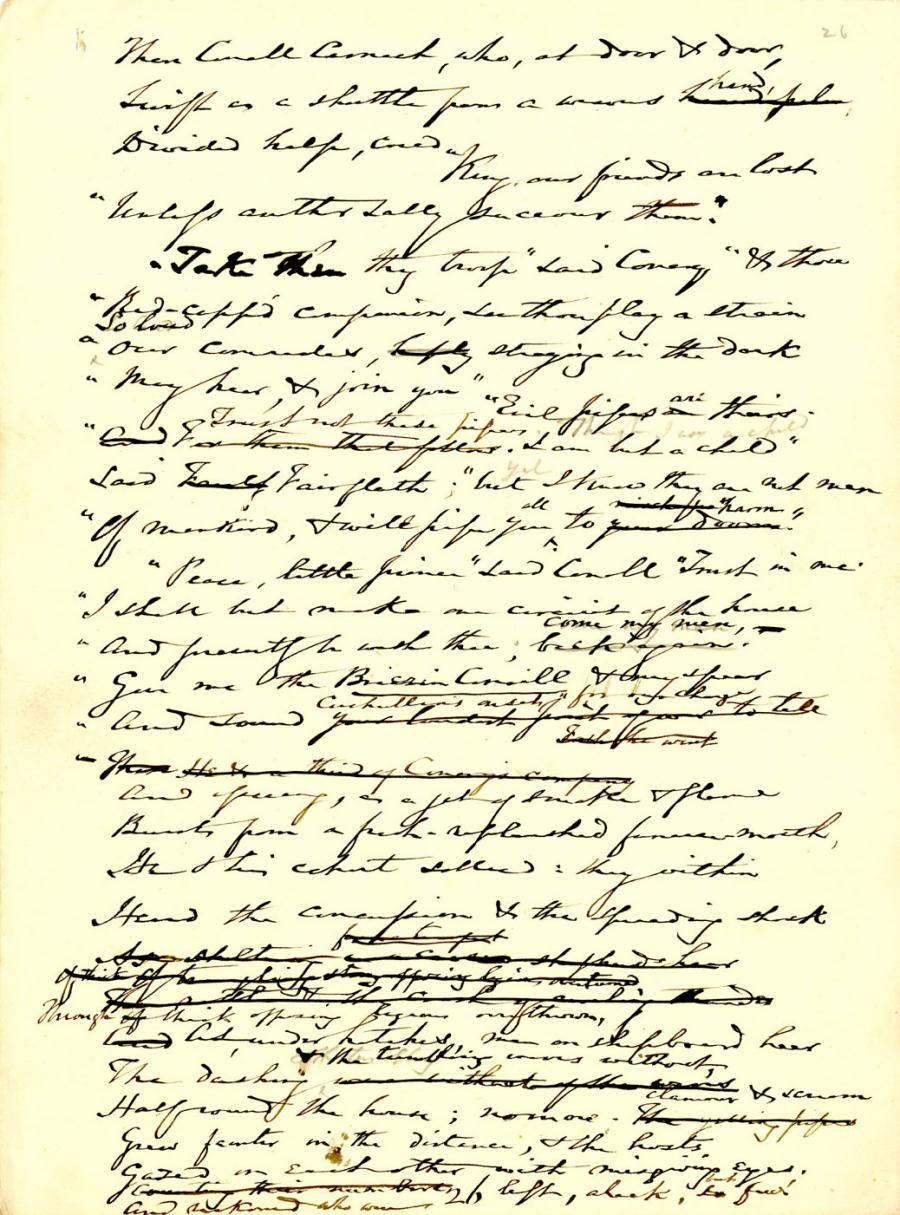 26
Then Conall Carnach, who, at door & door,
Swift as a shuttle from a weavers hand,
Divided help, cried "King, our friends are lost
"Unless another sally succour them."
"Take then thy troop" said Conery "& those
"Red-capp'd companions, see thou play a strain
"So loud
"Our comrades, straying in the dark
"May hear, & join you" "Evil pipes are theirs.
Trust not these pipers. I am but a child"
Said Fairfleth; "but I know they are not men
"Of mankind, & will pipe you all to harm."
"Peace, little prince" said Conall "Trust in me.
"I shall but make one circuit of the house
"And presently be with thee; come my men, –
"Give me the Brierin Conaill & my spear
"And sound Cuchullin's onset" for my charge
He & a third of Conery's company
And issuing, as a jet of smoke & flame
Bursts from a fresh-replenished furnace-mouth,
He & his cohort sallied: they within
Heard the concussion & the spreading shock
Through thick opposing legions overthrown,
As, under hatches, men on shipboard hear
The dashing & the tumbling waves without,
Half round the house; no more. clamour & scream
Grew fainter in the distance, & the hosts
Gazed on each other with misgiving eyes,
And reckoned who were left, alack, but few!